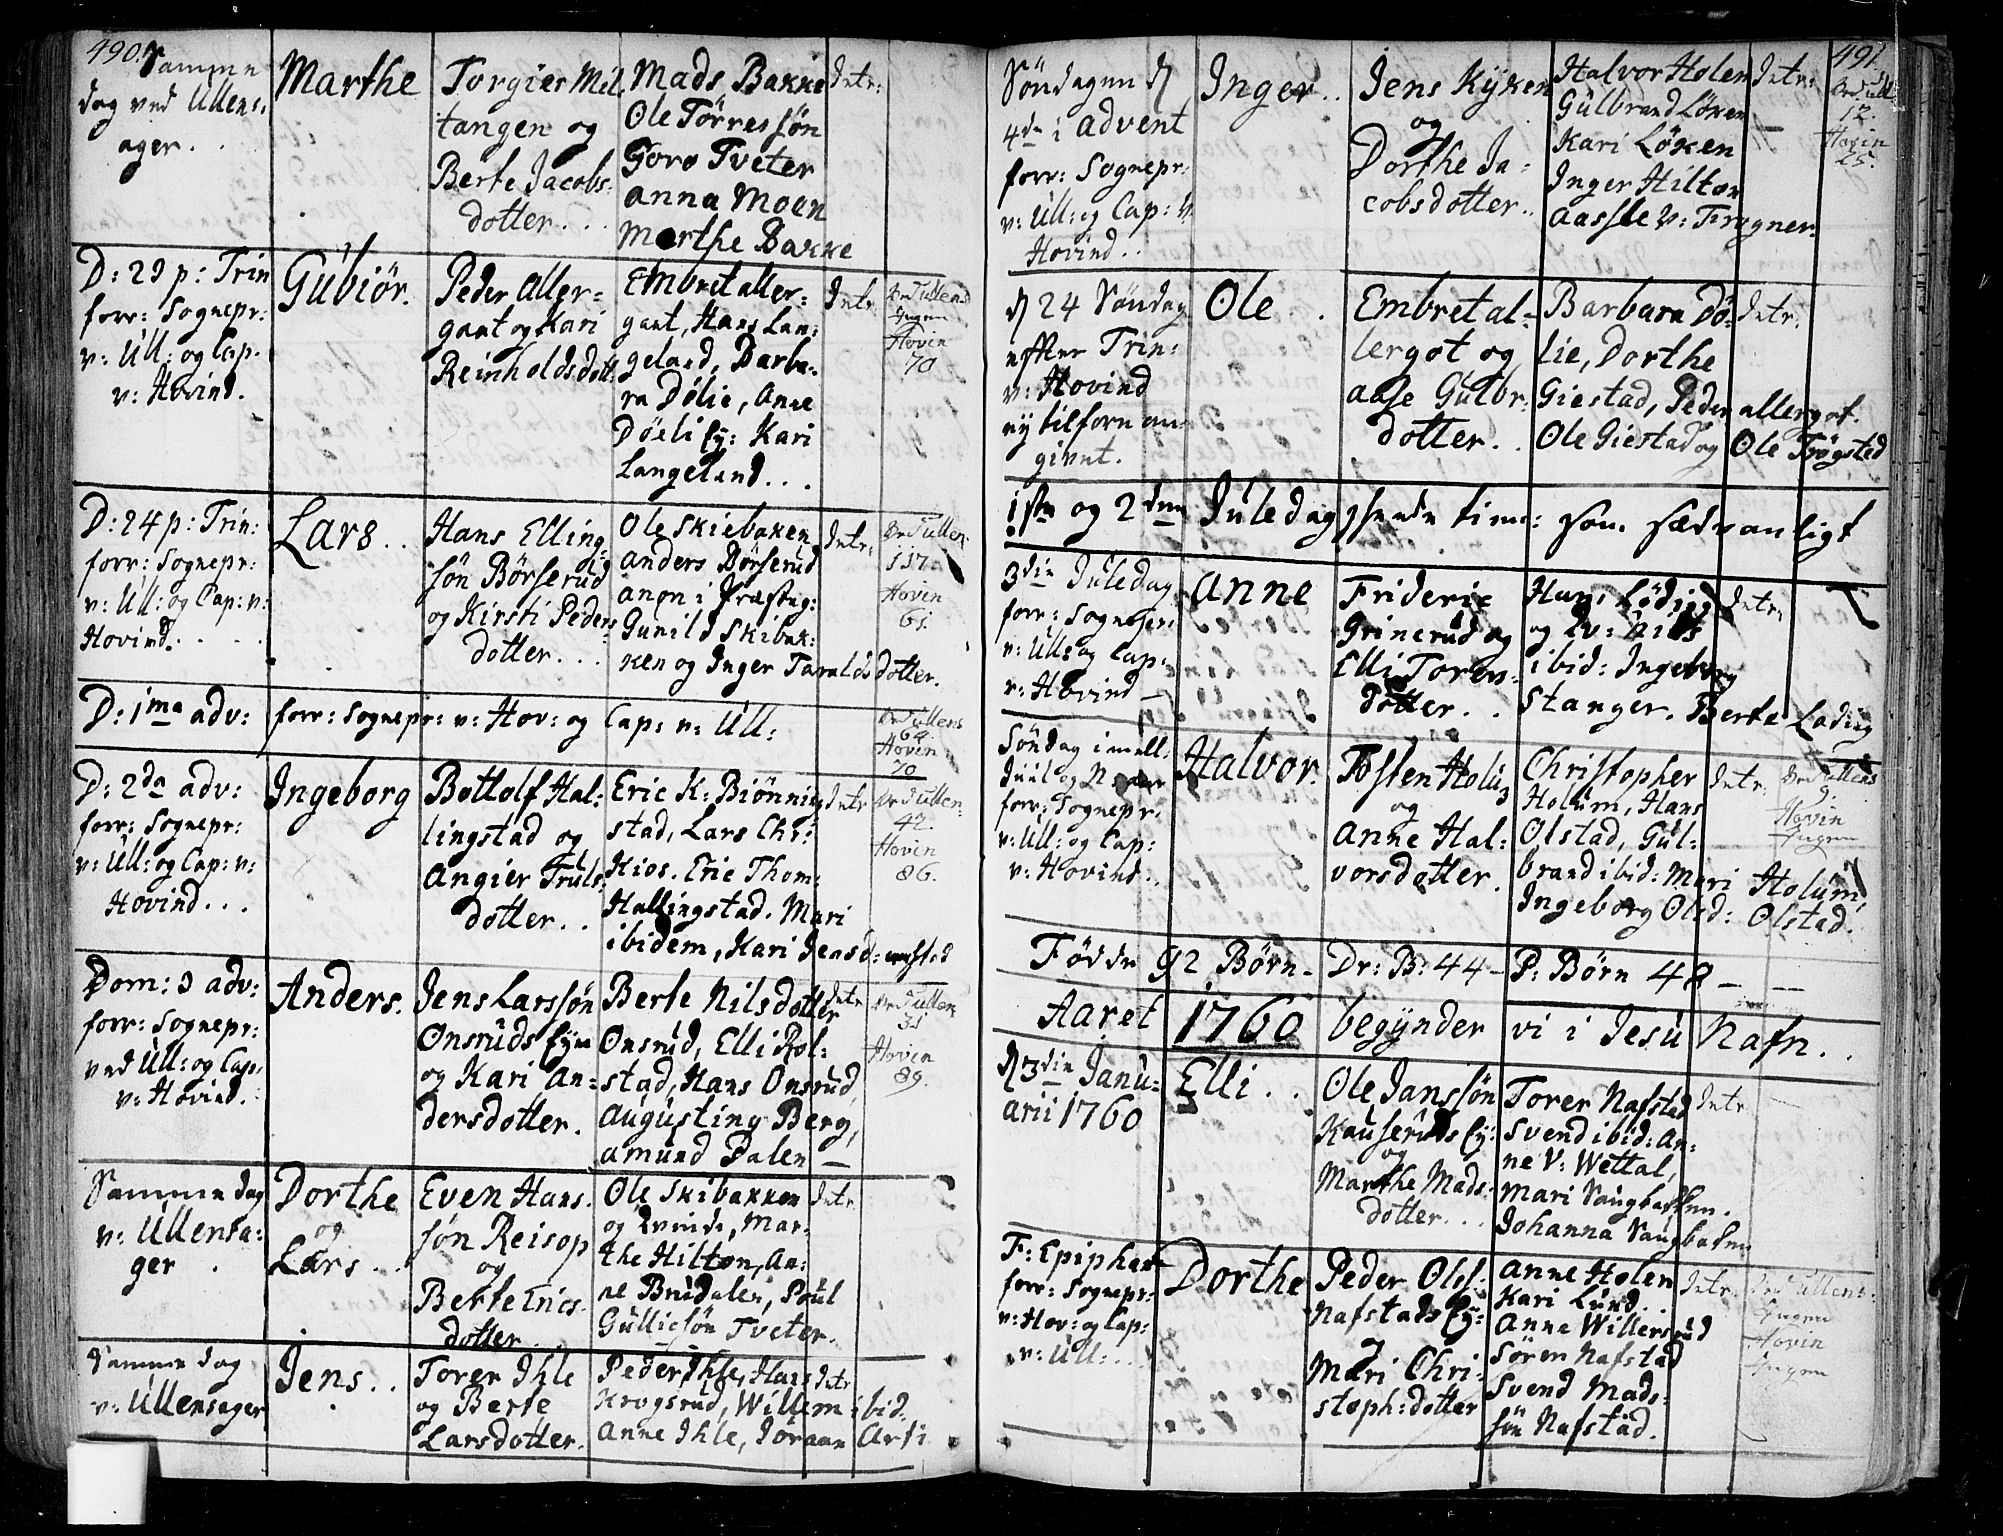 490.
Samme
dag ved Ullens:
ager. .
Marthe
Torgier Mel
tangen og
Berte Jacobs:
dotter. . .
Mads Bakke
Ole Törres sön
Goro Tveter
Anna Moen
Marthe Bakke
Intr:
D: 23 p: Trin
forr: Sognepr:
v: Ull: og Cap.
v: Hovind.
Gubiör.
Peder Aller-
gaat og Kari
Reinholdsdott:
Embret aller-
gaat, Hans Lan-
geland, Barba-
ra Dölie, Anne
Döeli Ey: Kari
Langeland. . .
Intr.
Ved Ullens
Ingen
Hovin
70
D: 24 p: Trin:
forr: Sognepr:
v: Ull: og Cap: v:
Hovind. . . .
Lars . .
Hans Elling-
sön Börserud
og Kirsti Peders
dotter. . .
Ole Skiebaken
Anders Börserud
anon i Præsteg:
Gunild Skibak:
ken og Inger Taraldsdotter.
Intr:
Ved Ullen
117.
Hovin
61.
D: 1ma adv: forr: Sognepr: v: Hov: og Cap: v: Ull:
Ved Ullens
64.
Hovin
70
D: 2da adv:
forr: Sognepr:
v: Ull: og Cap: v:
Hovind . . .
Ingeborg
Bottolf Hal-
lingstad og
Angier Truls
dotter. . .
Eric K: Biönning
stad, Lars Chr:
Hios. Eric Thom:
Hallingstad. Mari
ibidem, Kari Jensd:
Intr
Ved Ullen:
42.
Hovin
86.
Dom: 3 adv:
forr: Sognepr:
ved Ull: og Cap.
v: Hovind.
Anders.
Jens Larssön
Onsruds Eye
og Kari An-
dersdotter.
Berte Nilsdotter
Onsrud, Elli Rol-
stad, Hans Onsrud
Augusting Berg,
Amund Dalen —
Intr
Ved Ullen
31
Hovin
89.
Samme dag
v: Ullensa-
ger .
Dorthe
og
Lars . .
Even Hans-
sön Reisop
og
Berte Erics-
dotter
Ole Skibakken
og Qvinde, Mar-
the Hilton, An-
ne Brudalen, Poul
Gulliesön Tveter.
Intr.
Samme dag
v: Ullensager
Jens . .
Torer Ihle
og Berte
Larsdotter.
Peder Ihle, Hans
Krogsrud, Willem ibid.
Anne Ihle, Joraan Arti
Intr
491.
Söndagen d
4de i Advent
forr: Sognepr:
v: Ull: og Cap: v.
Hovind . .
Inger . .
Jens Kyken
og
Dorthe Ja-
cobsdotter. .
Halvor Holen
Gulbrand Löken
Kari Löken
Inger Hilton
Aasse v: Frogner.
Intr:
Ved Ull
12.
Hovin
25.
d 24 Söndag
effter Trin:
v: Hovind
ey tilforn an-
givet.
Ole .
Embret al-
lergot og
Aase Gulbr-
dotter. .
Barbara Dö-
lie, Dorthe
Giestad, Peder allergot.
Ole Giestad og Ole Trögsted
Intr:
1ste og 2den Juledag skeede tien: som sædvanligt
3die Juledag
forr: Sognepr:
v: Ull: og Cap:
v: Hovind —
Anne
Frideric
Grinerud og
Elli Torers-
dotter. .
Hans Löding
og Qv: Nils
ibid: Ingeborg
Stanger. Berte Lading
Intr.
Söndag imell.
Juul og N aar
forr: Sognepr.
v: Ull: og Cap:
v: Hovind. .
Halvor.
Tosten Holum
og
Anne Hal-
vorsdotter.
Christopher
Holum, Hans
Olstad, Gul-
brand ibid: Mari Holum,
Ingeborg Olsd: Olstad.
Intr.
Ved Ullens
9.
Hovin
Ingen
Födde 92 Börn — Dr: B: 44 — P: Börn 48 — —
Aaret 1760 begynder vi i Jesu Nafn. .
d 3die Janu-
arii 1760
Elli . .
Ole Janssön
Kauseruds Ey:
og
Marthe Mads-
dotter. . .
Torer Nafstad
Svend ibid: An-
ne v: Wettal,
Mari Saugbakken.
Johanna Saugbaken
Intr.
F: Epiphan
forr: Sognepr:
v: Hov: og Cap:
v: Ull: . .
Dorthe
Peder Ols:
Nafstads Ey:
og
Mari Chri-
stoph: dotter
Anne Holen
Kari Lund. .
Anne Willersrud
Sören Nafstad
Svend Mads-
sön Nafstad.
Intr.
Ved Ullens:
Ingen
Hovin
Ingen